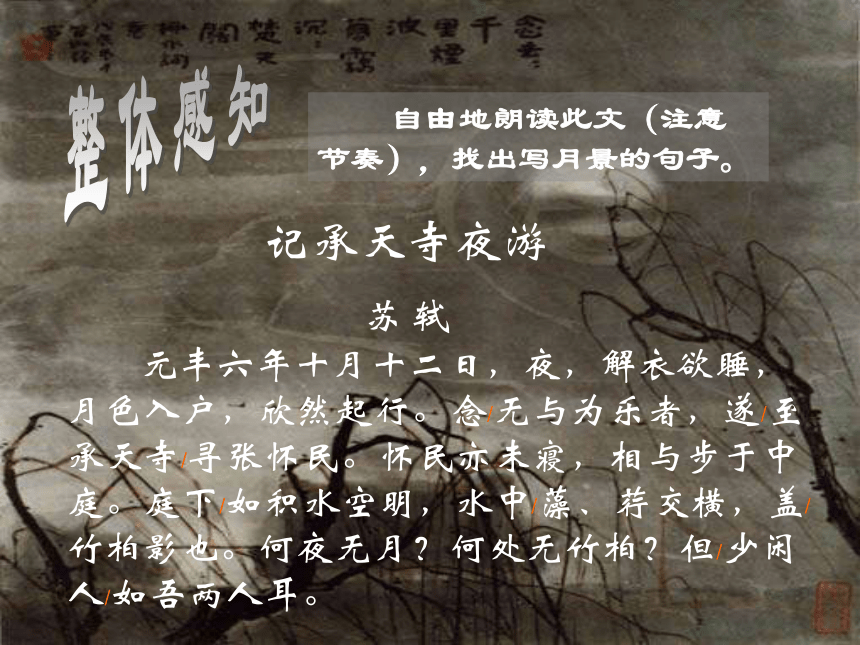 念去去
千
里烟
波
暮霭
沉沉
楚天
阔
整体感知
自由地朗读此文（注意
节奏），找出写月景的句子。
记承天寺夜游
苏 轼
元丰六年十月十二日，夜，解衣欲睡，
月色入户，欣然起行。念/无与为乐者，遂/至
承天寺/寻张怀民。怀民亦未寝，相与步于中
庭。庭下/如积水空明，水中/藻、荇交横，盖/
竹柏影也。何夜无月？何处无竹柏？但/少闲
人/如吾两人耳。